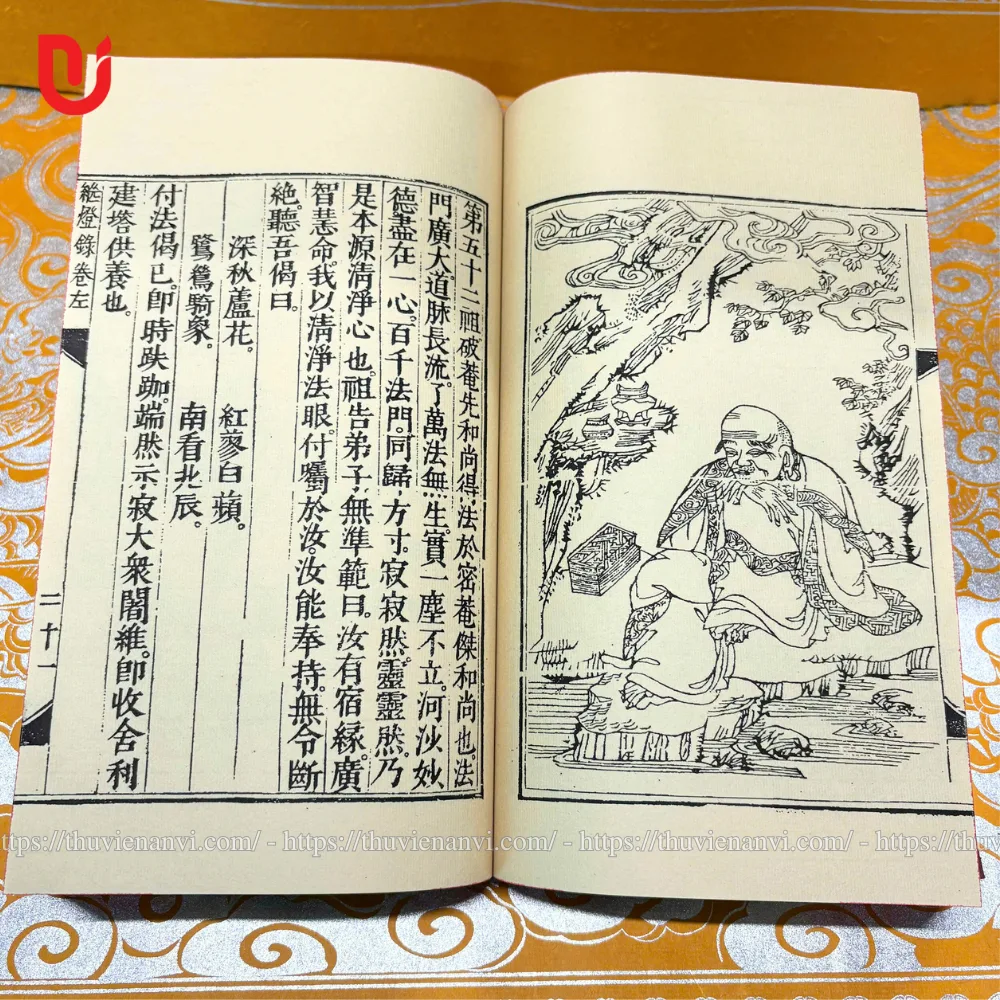 第五十二祖破菴先和尚得法於密菴傑和尚也。法
門廣大。道脉長流。了萬法無生。實一塵不立。河沙妙
德盡在一心。百千法門。同歸方寸。寂寂然。靈靈然。乃
是本源清淨心也。祖告弟子。無準範曰。汝有宿緣。廣
智慧命。我以清淨法眼。付囑於汝。汝能奉持。無令斷
絶。聽吾偈曰。
深秋蘆花。 紅蓼白蘋。
鷺鷥騎象。 南看北辰。
付法偈已。卽時趺跏。端然示寂大衆闍維。卽收舍利
建塔供養也。
繼燈錄卷左
二十一
https://thuvienanvi.com/ - https://thuvienanvi.com/ - https://thuvienanvi.com/ - https://thuvienanvi.com/